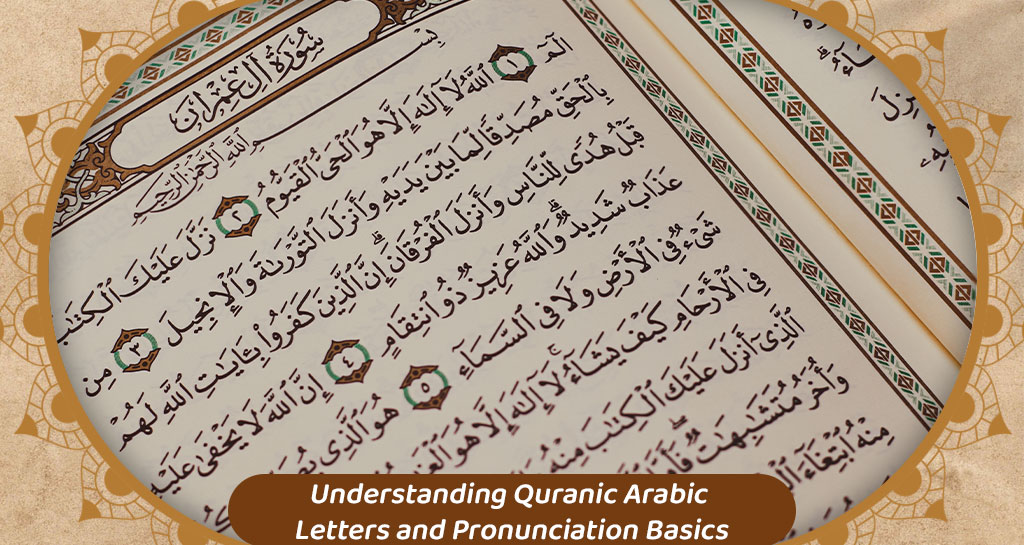 سُورَةُ آلِ عِمْرَانَ
بِسْمِ اللَّهِ الرَّحْمَٰنِ الرَّحِيمِ
الٓمٓ ١ ٱللَّهُ لَآ إِلَٰهَ إِلَّا هُوَ ٱلۡحَيُّ ٱلۡقَيُّومُ ٢ نَزَّلَ عَلَيۡكَ ٱلۡكِتَٰبَ
بِٱلۡحَقِّ مُصَدِّقٗا لِّمَا بَيۡنَ يَدَيۡهِ وَأَنزَلَ ٱلتَّوۡرَىٰةَ وَٱلۡإِنجِيلَ ٣ مِن
قَبۡلُ هُدٗى لِّلنَّاسِ وَأَنزَلَ ٱلۡفُرۡقَانَۗ إِنَّ ٱلَّذِينَ كَفَرُواْ بِـَٔايَٰتِ ٱللَّهِ لَهُمۡ
عَذَابٞ شَدِيدٞۗ وَٱللَّهُ عَزِيزٞ ذُو ٱنتِقَامٍ ٤ إِنَّ ٱللَّهَ لَا يَخۡفَىٰ عَلَيۡهِ
شَيۡءٞ فِي ٱلۡأَرۡضِ وَلَا فِي ٱلسَّمَآءِ ٥ هُوَ ٱلَّذِي
فِي ٱلۡأَرۡحَامِ كَيۡفَ يَشَآءُۚ لَآ إِلَٰهَ إِلَّا هُوَ
ٱلَّذِيٓ أَنزَلَ عَلَيۡكَ ٱلۡكِتَٰبَ مِنۡهُ
وَأُخَرُ مُتَشَٰبِهَٰتٞۖ
مِنۡهُ ٱبۡتِغَآءَ
Understanding Quranic Arabic
Letters and Pronunciation Basics